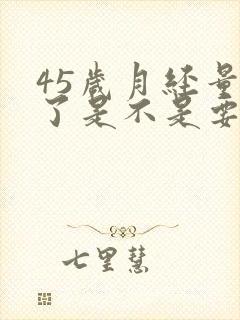 45歲月经量
了是不是要
七里慧